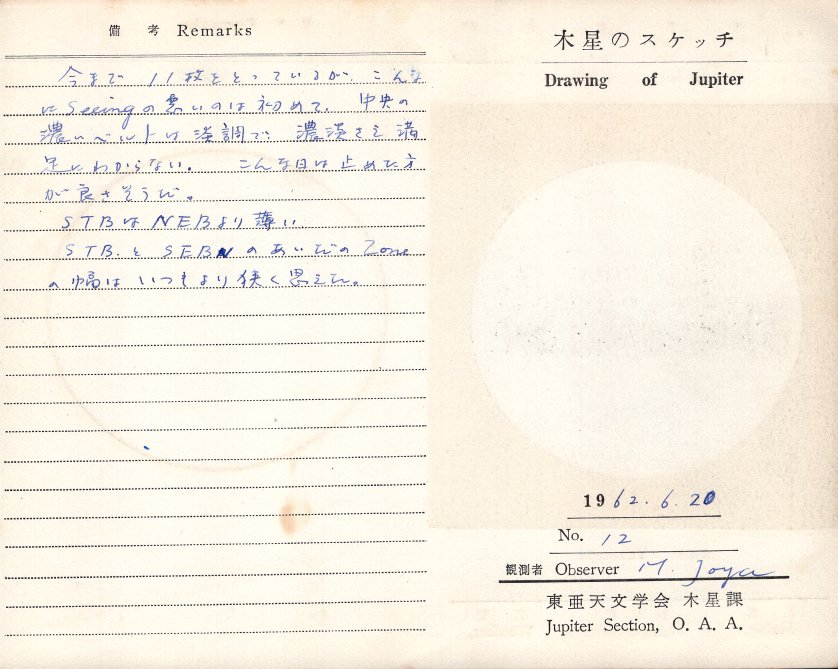 備考 Remarks
今まで 11枚をとっているが、こんな
にSeeingの悪いのは初めて、中央の
濃いベルトは淡調で、濃淡さえ満
足にわからない。こんな日は止めた方
が良さそうだ。
STBはNEBより薄い
STB.とSEBNのあいだのZone
の幅はいつもより狭く思えた。
木星のスケッチ
Drawing of Jupiter
1962.6.20
No. 12
観測者 Observer M. Joya
東亜天文学会 木星課
Jupiter Section, O. A. A.